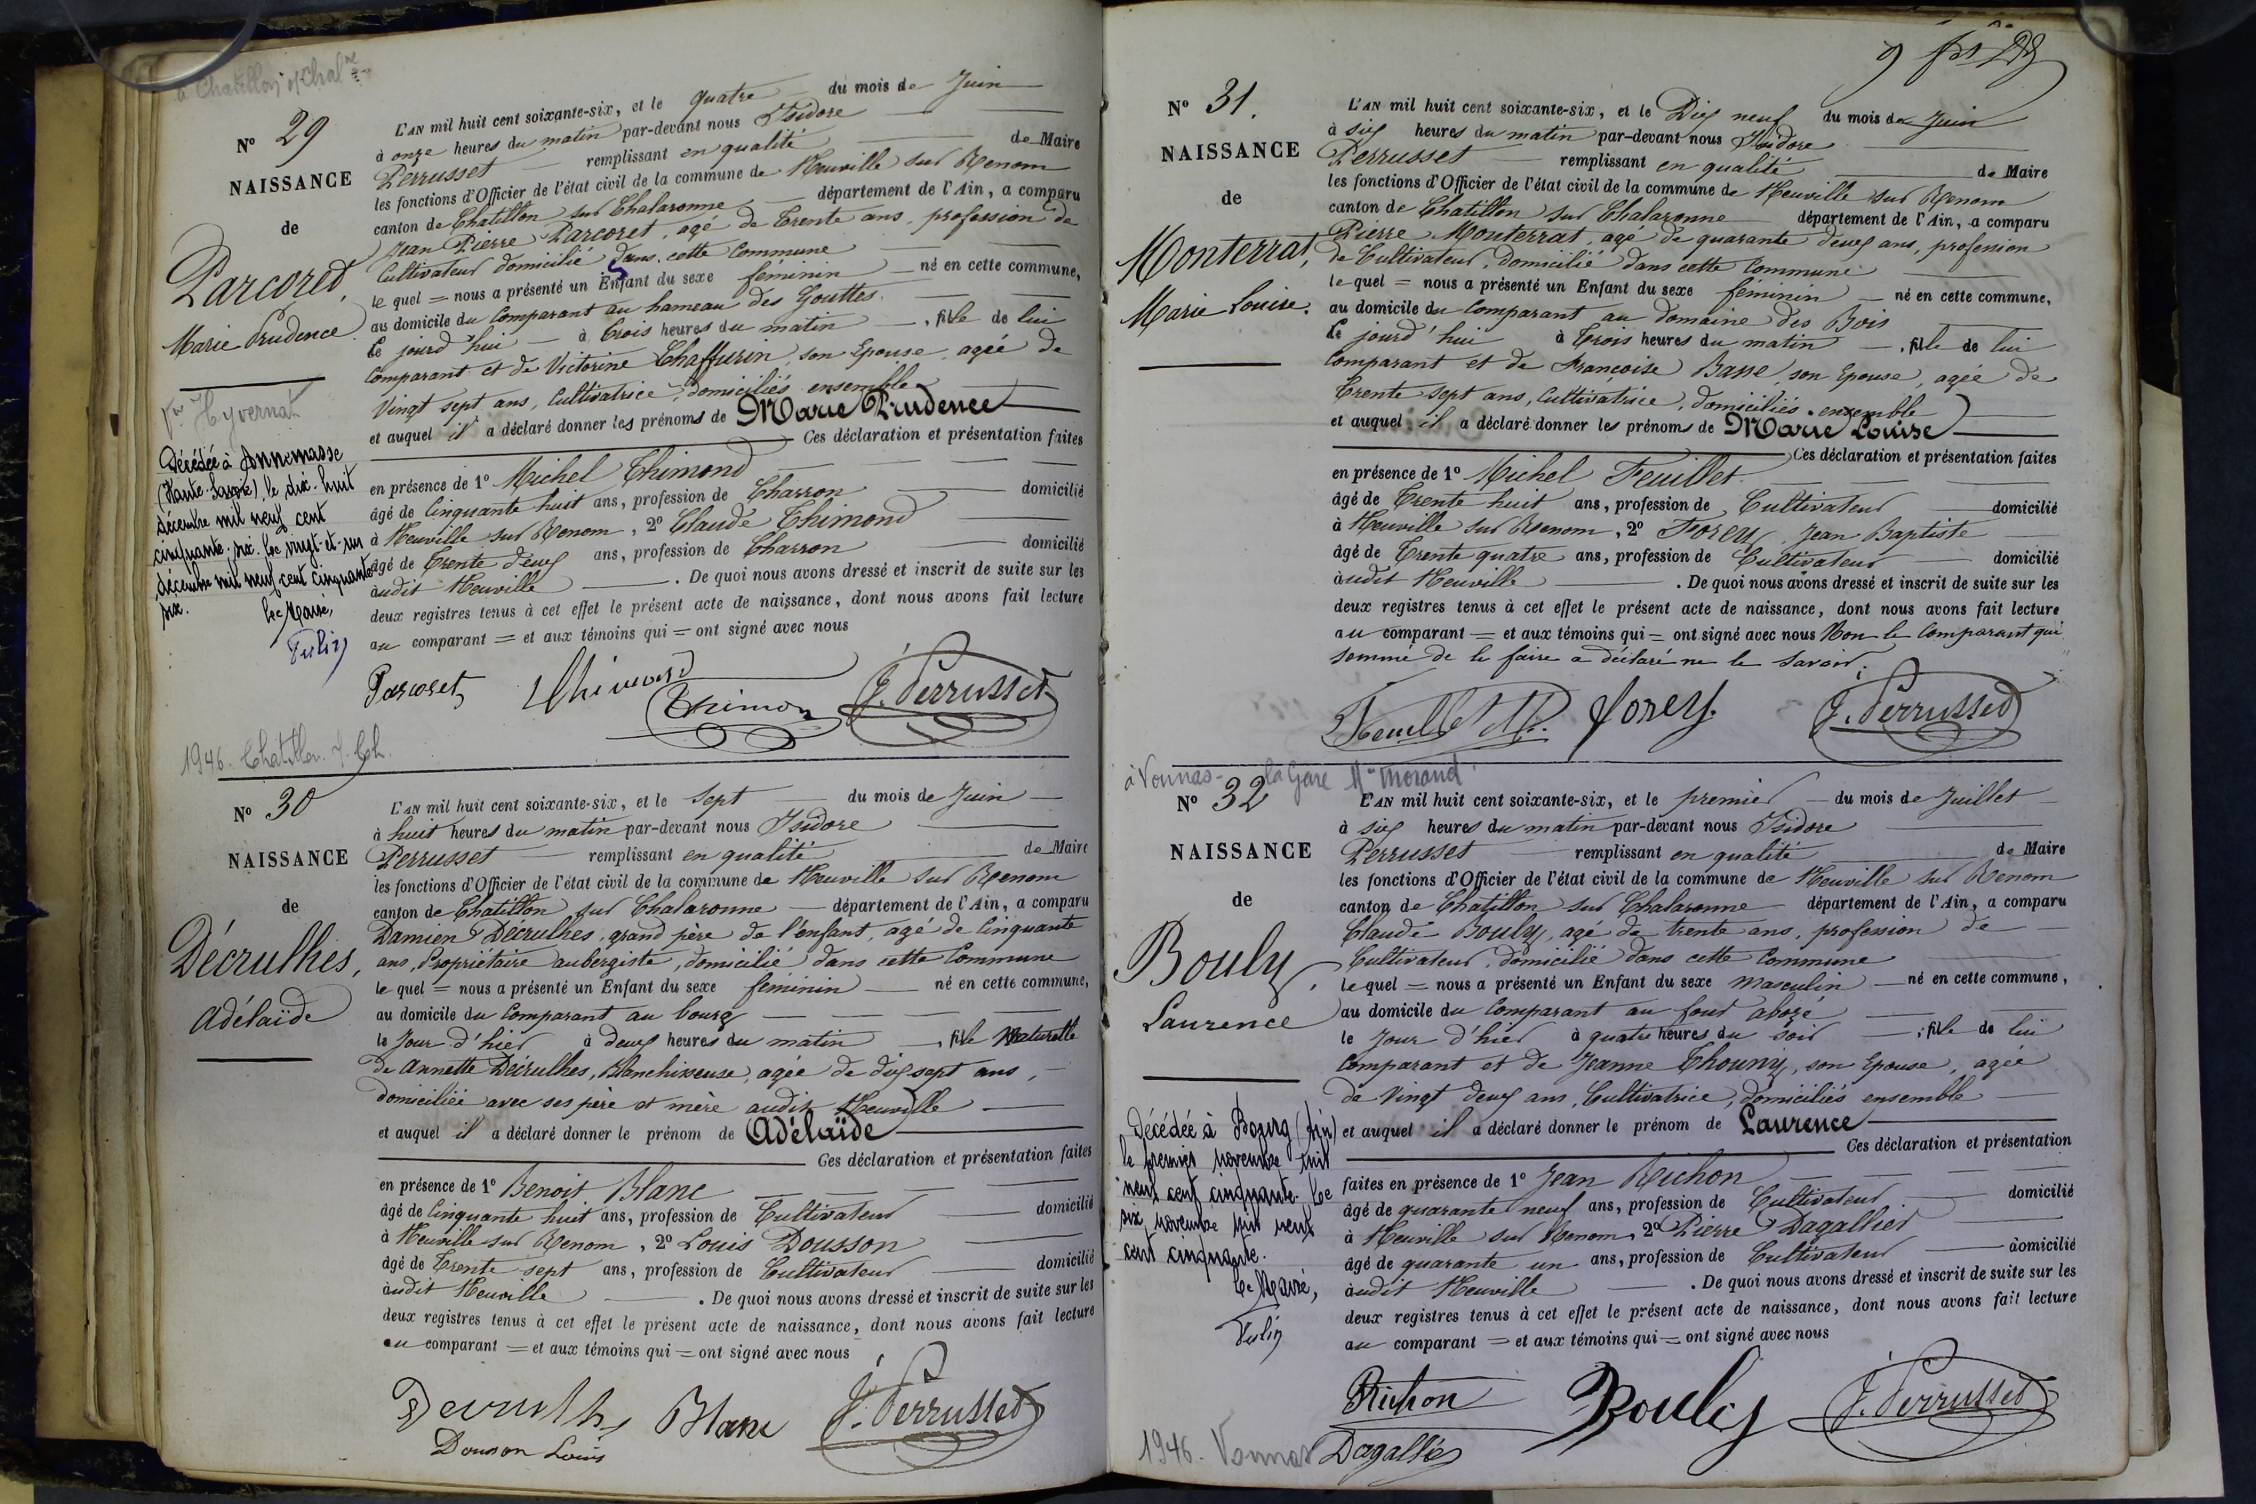 à Chatillon s/ Chal.ne
N° 29
NAISSANCE
de
Parcoret,
Marie Prudence.
Vve Hyvernat
Décédée à Annemasse
(Haute-Savoie), le dix-huit
décembre mil neuf cent
cinquante-six. Le vingt-et-un
décembre mil neuf cent cinquante
six.
Le Maire,
L'AN mil huit cent soixante-six, et le quatre du mois de Juin
à onze heures du matin par-devant nous Isidore
Perrusset remplissant en qualité de Maire
les fonctions d'Officier de l'état civil de la commune de Neuville sur Renom
canton de Chatillon sur Chalaronne département de l'Ain, a comparu
Jean Pierre Parcoret, agé de Trente ans, profession de
Cultivateur domicilié dans cette Commune
le quel = nous a présenté un Enfant du sexe féminin né en cette commune,
au domicile du Comparant au hameau des Gouttes.
Ce jourd'hui à Trois heures du matin, fille de lui
Comparant et de Victorine Chaffurin, son Epouse, agée de
Vingt sept ans, Cultivatrice, domiciliés ensemble
et auquel il a déclaré donner les prénoms de Marie Prudence
Ces déclaration et présentation faites
en présence de 1° Michel Thimond
âgé de Cinquante huit ans, profession de Charron domicilié
à Neuville sur Renom, 2° Claude Thimond
âgé de Trente deux ans, profession de Charron domicilié
audit Neuville. De quoi nous avons dressé et inscrit de suite sur les
deux registres tenus à cet effet le présent acte de naissance, dont nous avons fait lecture
au comparant = et aux témoins qui = ont signé avec nous
Parcoret Thimond
Thimon J. Perrusset
1946. Chatillon s. Ch.
N° 30
NAISSANCE
de
Décrulhes,
Adélaïde
L'AN mil huit cent soixante-six, et le Sept du mois de Juin
à huit heures du matin par-devant nous Isidore
Perrusset remplissant en qualité de Maire
les fonctions d'Officier de l'état civil de la commune de Neuville sur Renom
canton de Chatillon sur Chalaronne département de l'Ain, a comparu
Damien Décrulhes, grand père de l'enfant, agé de Cinquante
ans, Propriétaire aubergiste, domicilié dans cette Commune
le quel = nous a présenté un Enfant du sexe féminin né en cette commune,
au domicile du Comparant au bourg
le Jour d'hier à deux heures du matin, fille Naturelle
de Annette Décrulhes, Blanchisseuse, agée de dix sept ans,
domiciliée avec ses père et mère audit Neuville
et auquel il a déclaré donner le prénom de Adélaïde
Ces déclaration et présentation faites
en présence de 1° Benoit Blanc
âgé de Cinquante huit ans, profession de Cultivateur domicilié
à Neuville sur Renom, 2° Louis Dousson
âgé de Trente sept ans, profession de Cultivateur domicilié
audit Neuville. De quoi nous avons dressé et inscrit de suite sur les
deux registres tenus à cet effet le présent acte de naissance, dont nous avons fait lecture
au comparant = et aux témoins qui = ont signé avec nous
Blanc J. Perrusset
Dousson Louis
N° 31.
NAISSANCE
de
Monterrat,
Marie Louise.
L'AN mil huit cent soixante-six, et le Dix neuf du mois de Juin
à six heures du matin par-devant nous Isidore
Perrusset remplissant en qualité de Maire
les fonctions d'Officier de l'état civil de la commune de Neuville sur Renom
canton de Chatillon sur Chalaronne département de l'Ain, a comparu
Pierre Monterrat, agé de quarante deux ans, profession
de Cultivateur, domicilié dans cette Commune
le quel = nous a présenté un Enfant du sexe féminin né en cette commune,
au domicile du Comparant au domaine des Bois
Ce jourd'hui à Trois heures du matin, fille de lui
Comparant et de Françoise Basse, son Epouse, agée de
Trente sept ans, Cultivatrice, domiciliés ensemble
et auquel il a déclaré donner les prénoms de Marie Louise
Ces déclaration et présentation faites
en présence de 1° Michel Feuillet
âgé de Trente huit ans, profession de Cultivateur domicilié
à Neuville sur Renom, 2° Forey, Jean Baptiste
âgé de Trente quatre ans, profession de Cultivateur domicilié
audit Neuville. De quoi nous avons dressé et inscrit de suite sur les
deux registres tenus à cet effet le présent acte de naissance, dont nous avons fait lecture
au comparant = et aux témoins qui = ont signé avec nous Non le Comparant qui
sommé de le faire a déclaré ne le savoir.
Feuillet M. Forey. J. Perrusset
à Vonnas - la Gare Mme Morand
N° 32
NAISSANCE
de
Bouly,
Laurence
Décédée à Bourg (Ain)
le premier novembre mil
neuf cent cinquante. Le
six novembre mil neuf
cent cinquante.
Le Maire,
L'AN mil huit cent soixante-six, et le premier du mois de Juillet
à six heures du matin par-devant nous Isidore
Perrusset remplissant en qualité de Maire
les fonctions d'Officier de l'état civil de la commune de Neuville sur Renom
canton de Chatillon sur Chalaronne département de l'Ain, a comparu
Claude Bouly, agé de trente ans, profession de
Cultivateur, domicilié dans cette Commune
le quel = nous a présenté un Enfant du sexe masculin né en cette commune,
au domicile du Comparant au four abozé
le Jour d'hier à quatre heures du soir, fille de lui
Comparant et de Jeanne Thouny, son Epouse, agée
de Vingt deux ans, Cultivatrice, domiciliés ensemble
et auquel il a déclaré donner le prénom de Laurence
Ces déclaration et présentation
faites en présence de 1° Jean Richon
âgé de quarante neuf ans, profession de Cultivateur domicilié
à Neuville sur Renom, 2° Pierre Dagallier
âgé de quarante un ans, profession de Cultivateur domicilié
audit Neuville. De quoi nous avons dressé et inscrit de suite sur les
deux registres tenus à cet effet le présent acte de naissance, dont nous avons fait lecture
au comparant = et aux témoins qui = ont signé avec nous
Richon Bouly J. Perrusset
1946. Vonnas Dagallier